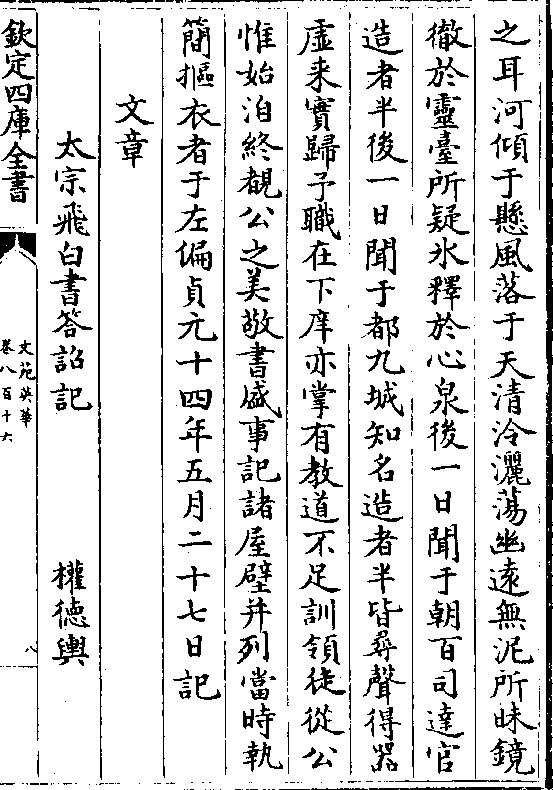 之耳河傾于懸風落于天清泠灑蕩幽遠無泥所昧鏡
徹於靈臺所疑氷釋於心泉後一日聞于朝百司達官
造者半後一日聞于都九城知名造者半皆尋聲得器
虛来實歸予職在下庠亦掌有教道不足訓領徒從公
惟始洎終覩公之美敬書盛事記諸屋壁并列當時執
簡摳衣者于左偏貞元十四年五月二十七日記
文章
太宗飛白書答詔記 權德輿
欽定四庫全書
文苑英華
卷八百十六
八